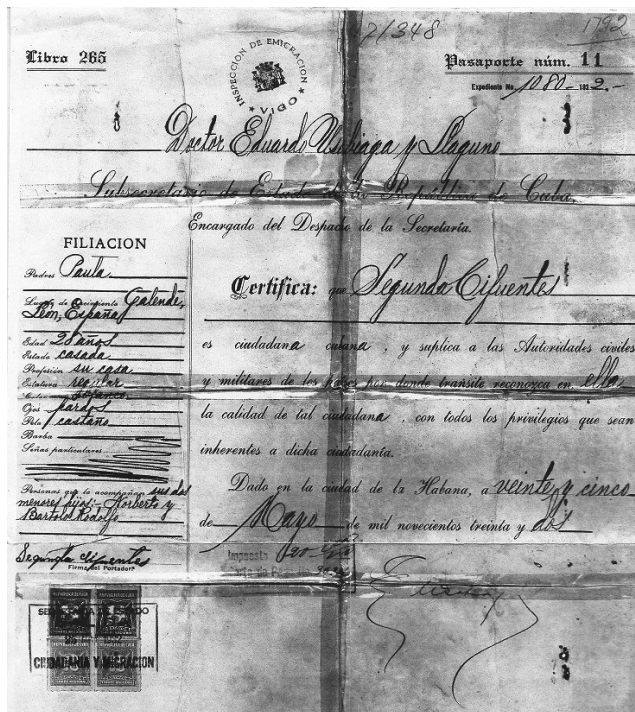 71348
1792
Libro 265
INSPECCION DE EMIGRACION
★ VIGO ★
Pasaporte núm. 11
Expediente No. 1080- 1932.-
Doctor Eduardo Usabiaga y Llaguno
Subsecretario de Estado de la República de Cuba.
Encargado del Despacho de la Secretaría.
FILIACION
Padres Paula
Lugar de nacimiento Galende,
León, España
Edad 28 años
Estado casada
Profesión su casa
Estatura regular
Color blanco
Ojos pardos
Pelo castaño
Barba
Señas particulares
Personas que la acompañan sus dos
menores hijos:- Norberto y
Bartolo Rodolfo
Segunda Cifuentes
Firma del Portador
Certifica: que Segunda Cifuentes
es ciudadana cubana, y suplica a las Autoridades civiles
y militares de los países por donde transite reconozca en ella
la calidad de tal ciudadana, con todos los privilegios que sean
inherentes a dicha ciudadanía.
Dado en la ciudad de la Habana, a veinte y cinco
de Mayo de mil novecientos treinta y dos
Impuesto
SECRETARIA DE ESTADO
CIUDADANIA Y MIGRACION